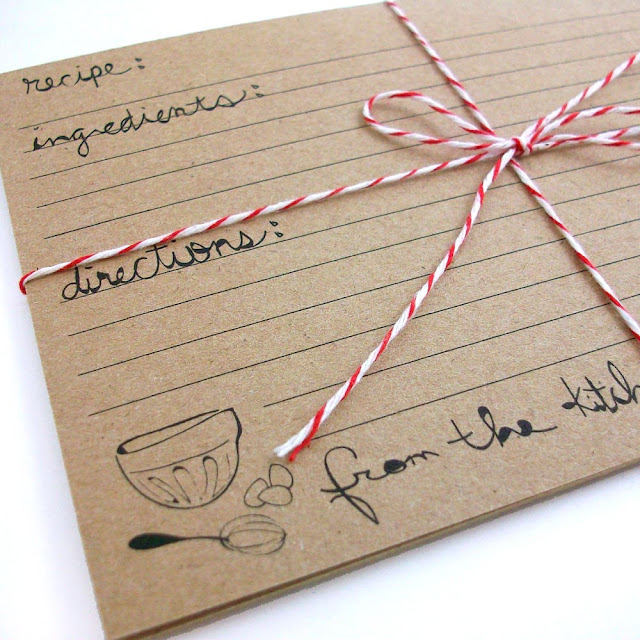 recipe:
ingredients:
directions:
from the kitch